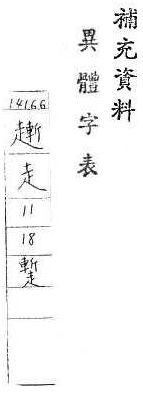 補充資料
異體字表
14166
趰
走
11
18
蹔